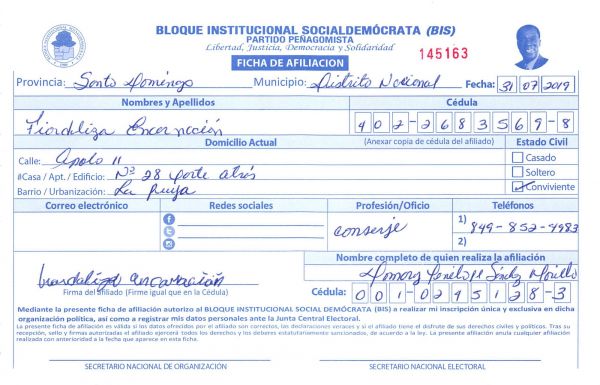 BLOQUE INSTITUCIONAL SOCIALDEMÓCRATA (BIS)
PARTIDO PEÑAGOMISTA
Libertad, Justicia, Democracia y Solidaridad
145163
FICHA DE AFILIACION
Provincia: Santo Domingo Municipio: Distrito Nacional Fecha: 31 07 2019
Nombres y Apellidos Cédula
Fiordaliza Encarnación 402-2683569-8
Domicilio Actual (Anexar copia de cédula del afiliado) Estado Civil
Calle: Apolo 11 Casado
#Casa / Apt. / Edificio: Nº 28 parte atrás Soltero
Barrio / Urbanización: La Puya Conviviente
Correo electrónico Redes sociales Profesión/Oficio Teléfonos
conserje 1) 849-852-4983
2)
Nombre completo de quien realiza la afiliación
Penélope Sánchez Morillo
encarnación
Firma del afiliado (Firme igual que en la Cédula) Cédula: 001-0245128-3
Mediante la presente ficha de afiliación autorizo al BLOQUE INSTITUCIONAL SOCIAL DEMÓCRATA (BIS) a realizar mi inscripción única y exclusiva en dicha
organización política, así como a registrar mis datos personales ante la Junta Central Electoral.
La presente ficha de afiliación es válida si los datos ofrecidos por el afiliado son correctos, las declaraciones veraces y si el afiliado tiene el disfrute de sus derechos civiles y políticos. Tras su
recepción, sello y firmas autorizadas el afiliado ejercerá todos los derechos y los deberes estatutariamente sancionados, de acuerdo a la ley. La presente afiliación anula cualquier afiliación
realizada con anterioridad a la fecha que aparece en esta ficha.
SECRETARIO NACIONAL DE ORGANIZACIÓN SECRETARIO NACIONAL ELECTORAL